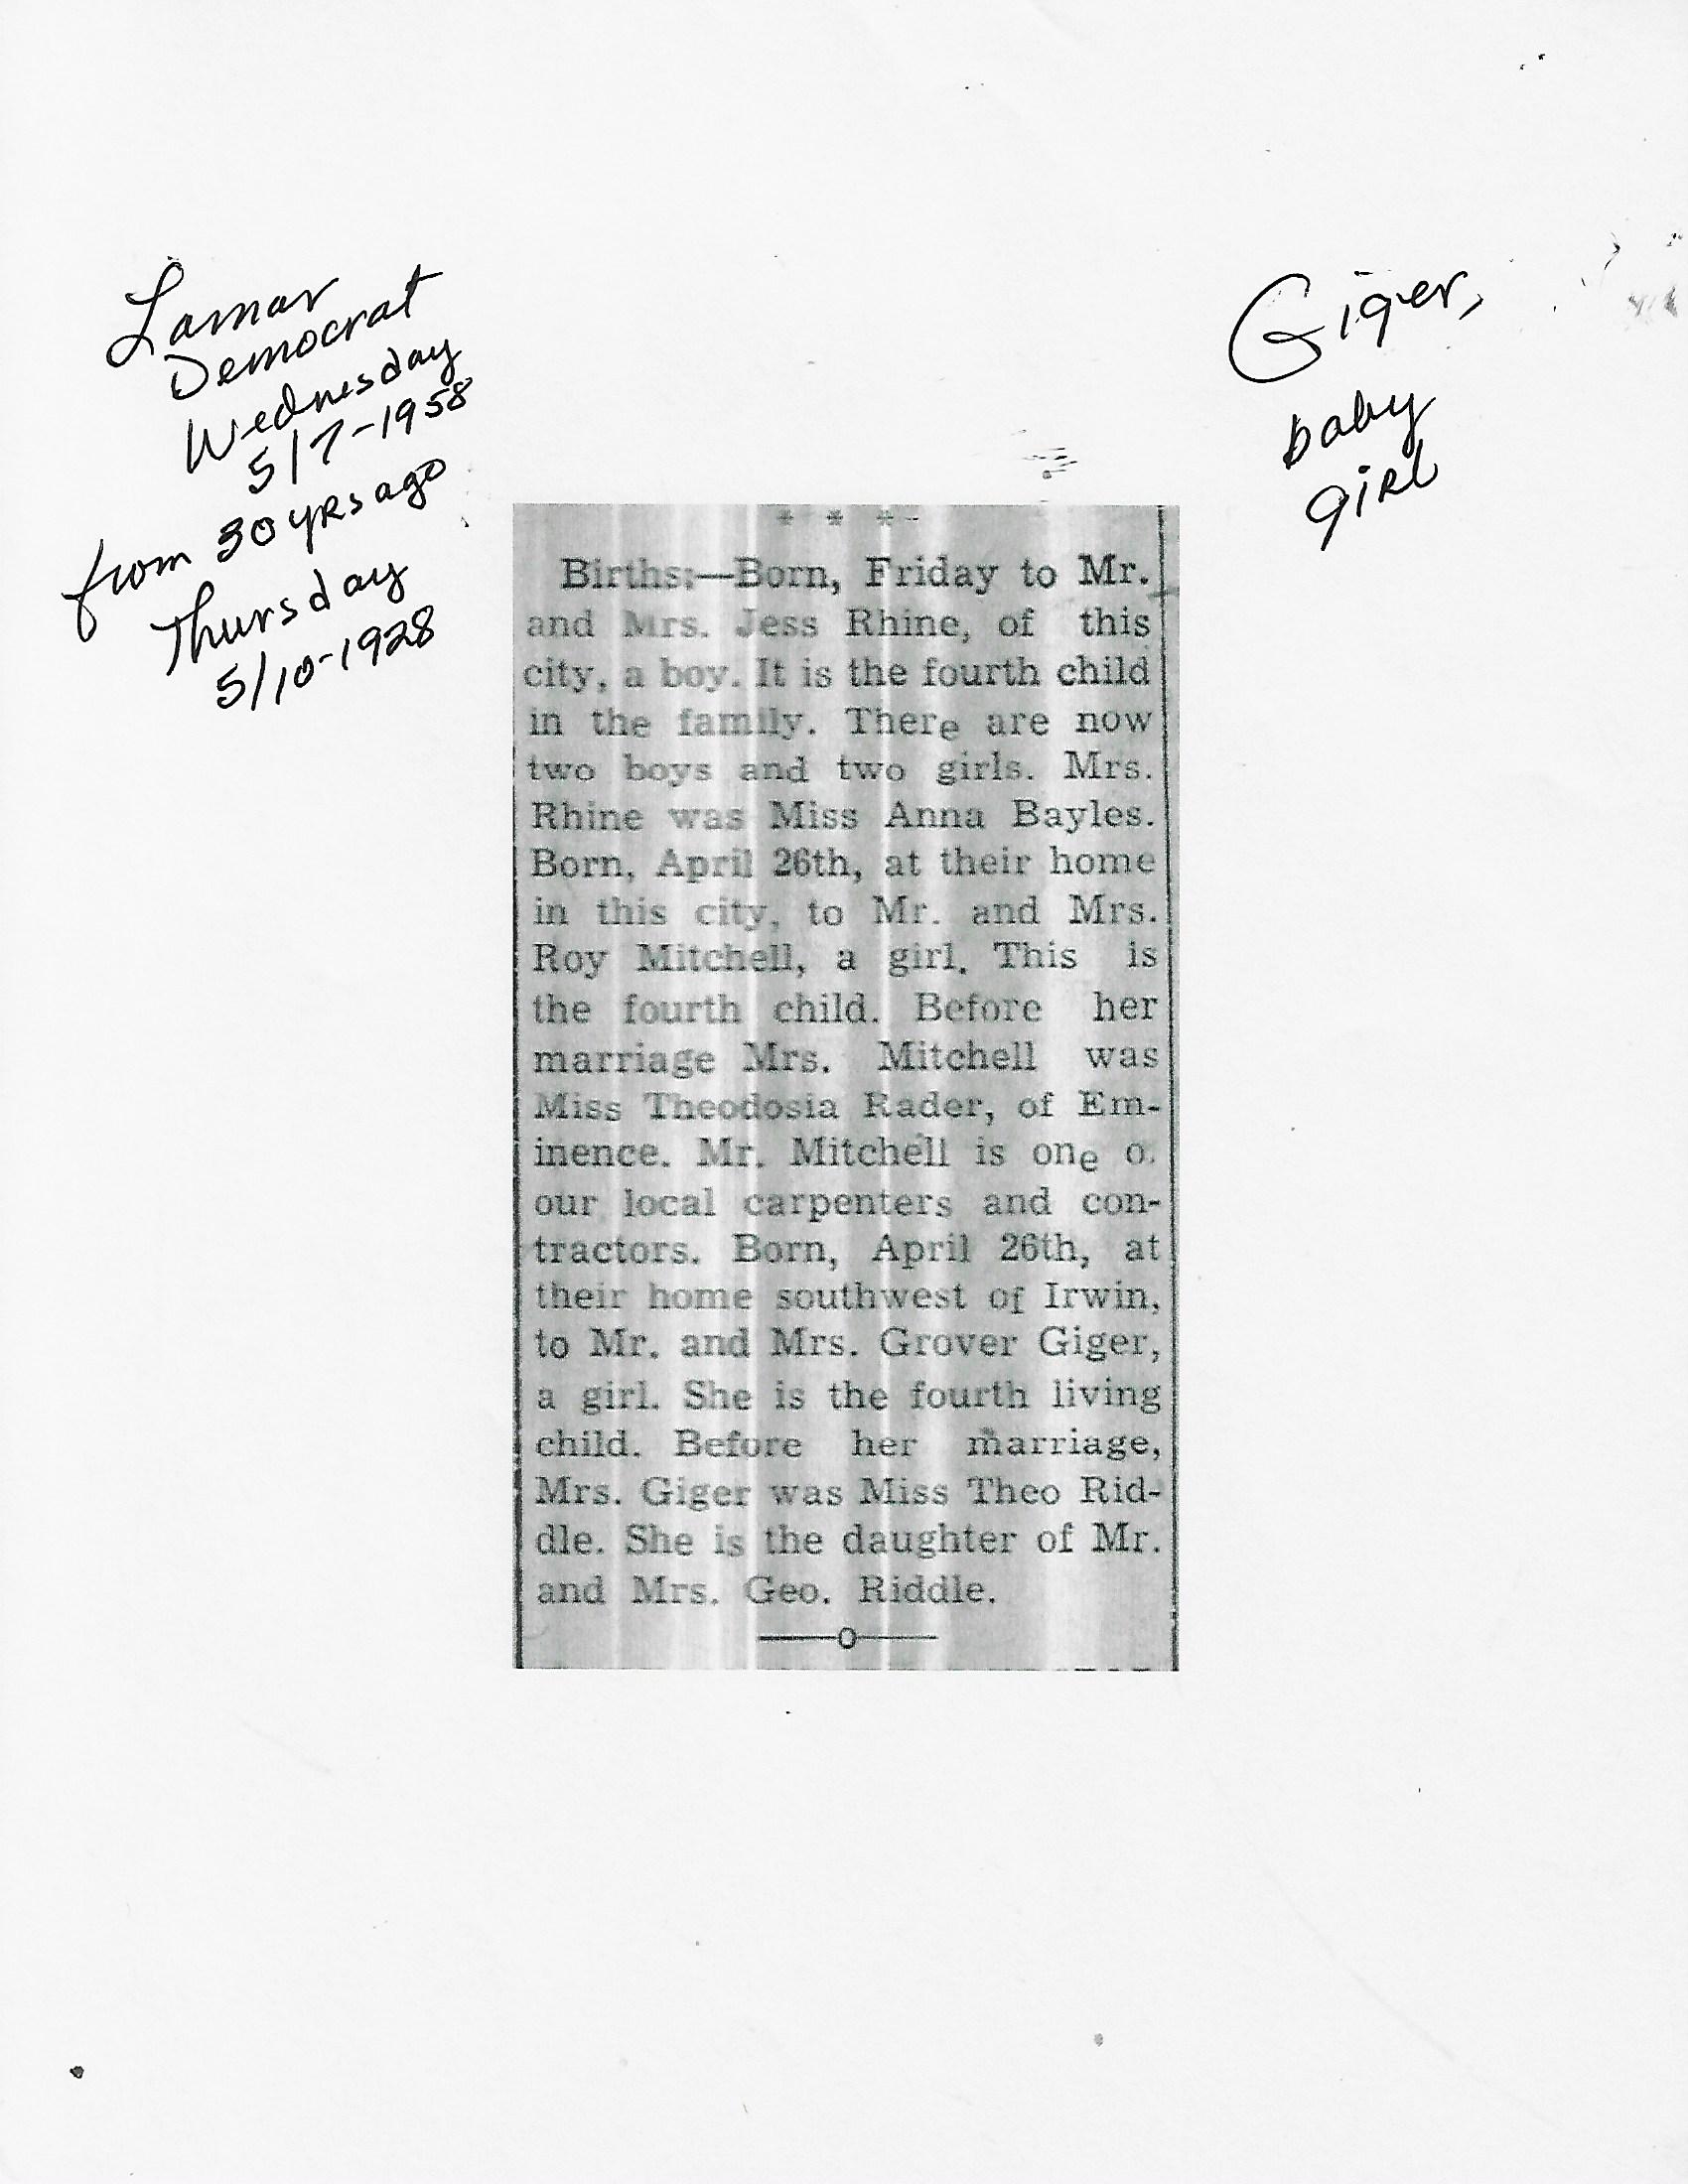 Lamar
Democrat
Wednesday
5/7-1958
from 30 yrs ago
Thursday
5/10-1928
Giger,
baby
girl
* * *
Births:—Born, Friday to Mr.
and Mrs. Jess Rhine, of this
city, a boy. It is the fourth child
in the family. There are now
two boys and two girls. Mrs.
Rhine was Miss Anna Bayles.
Born, April 26th, at their home
in this city, to Mr. and Mrs.
Roy Mitchell, a girl. This is
the fourth child. Before her
marriage Mrs. Mitchell was
Miss Theodosia Rader, of Em-
inence. Mr. Mitchell is one o
our local carpenters and con-
tractors. Born, April 26th, at
their home southwest of Irwin,
to Mr. and Mrs. Grover Giger,
a girl. She is the fourth living
child. Before her marriage,
Mrs. Giger was Miss Theo Rid-
dle. She is the daughter of Mr.
and Mrs. Geo. Riddle.
——o——